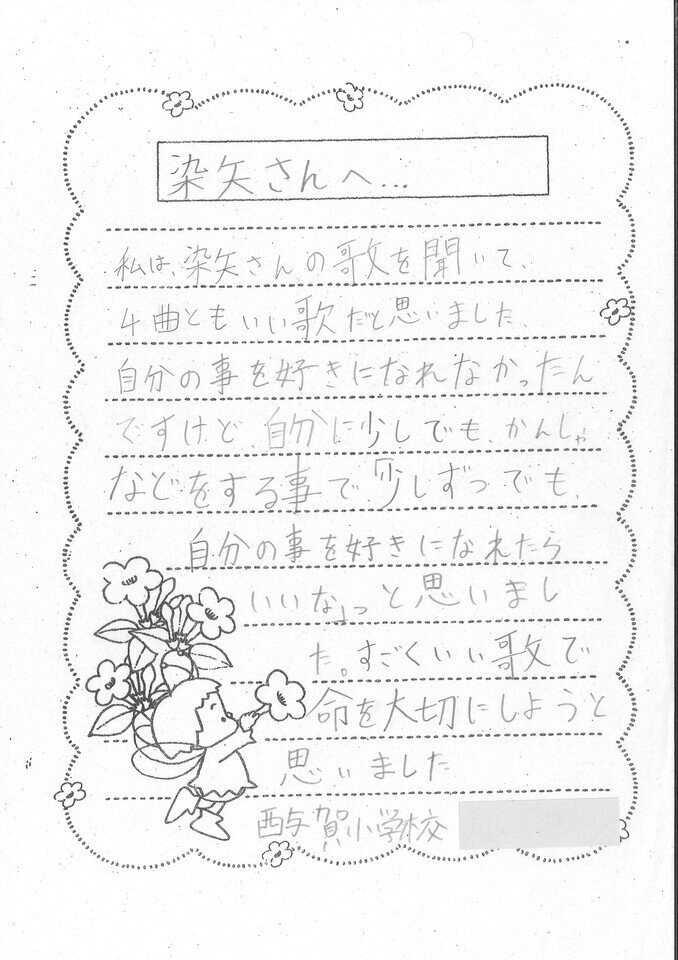 染矢さんへ…
私は、染矢さんの歌を聞いて、
4曲ともいい歌だと思いました、
自分の事を好きになれなかったん
ですけど、自分に少しでも、かんしゃ
などをする事で「少しずつでも、
自分の事を好きになれたら
いいな」っと思いまし
た。すごくいい歌で
命を大切にしようと
思いました
西与賀小学校